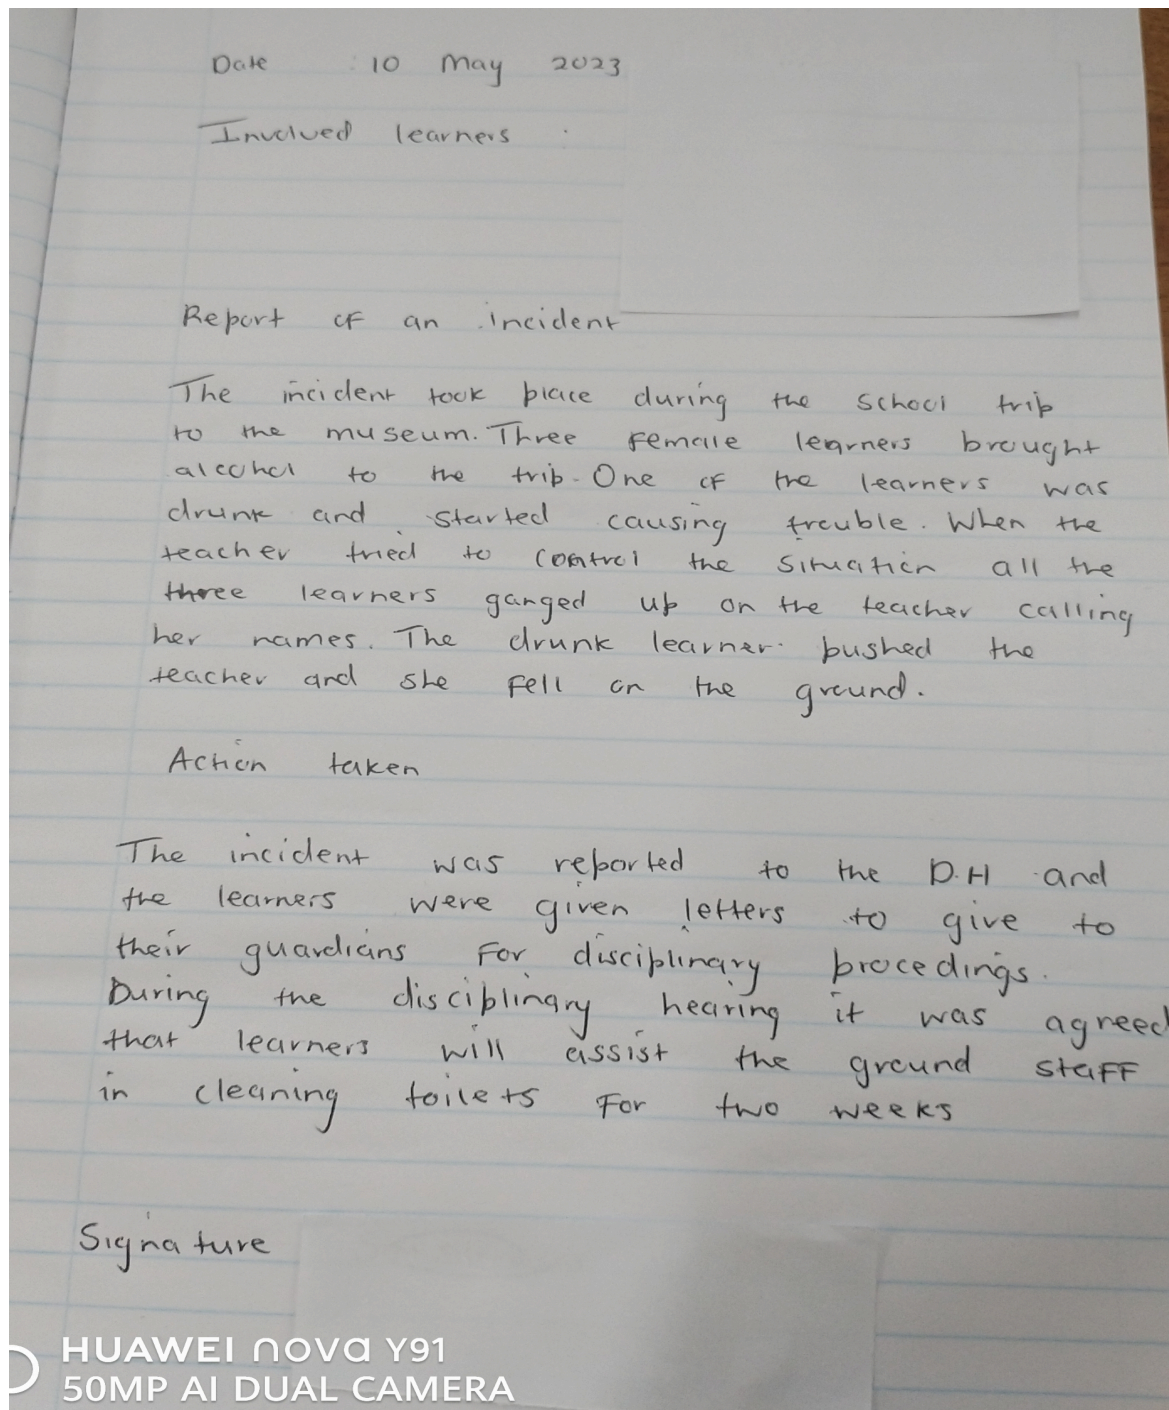 Date : 10 May 2023
Involved learners :
Report of an incident
The incident took place during the school trip
to the museum. Three female learners brought
alcohol to the trip. One of the learners was
drunk and started causing trouble. When the
teacher tried to control the situation all the
three learners ganged up on the teacher calling
her names. The drunk learner pushed the
teacher and she fell on the ground.
Action taken
The incident was reported to the D.H and
the learners were given letters to give to
their guardians for disciplinary procedings.
During the disciplinary hearing it was agreed
that learners will assist the ground staff
in cleaning toilets for two weeks
Signature
HUAWEI nova Y91
50MP AI DUAL CAMERA